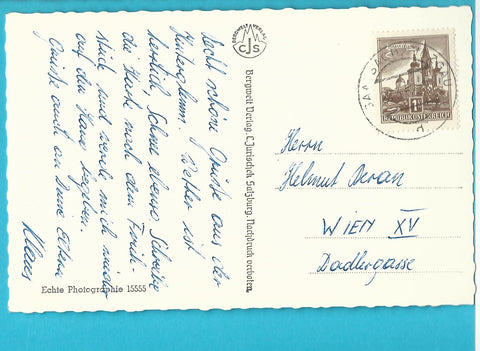 Recht schöne Grüße aus der
Hinterglemm. Wetter ist
herrlich, Schnee ebenso. Schreibe
die Karte nach dem Früh-
stück und werde mich wieder
auf den Hang begeben.
Grüße auch an Deine Eltern
Klaus
Echte Photographie 15555
BERGWELT VERLAG
CJS
Bergwelt Verlag, C. Jurischek Salzburg. Nachdruck verboten.
1S
REPUBLIK ÖSTERREICH
SAALBACH
Herrn
Helmut
WIEN XV
Dadlergasse